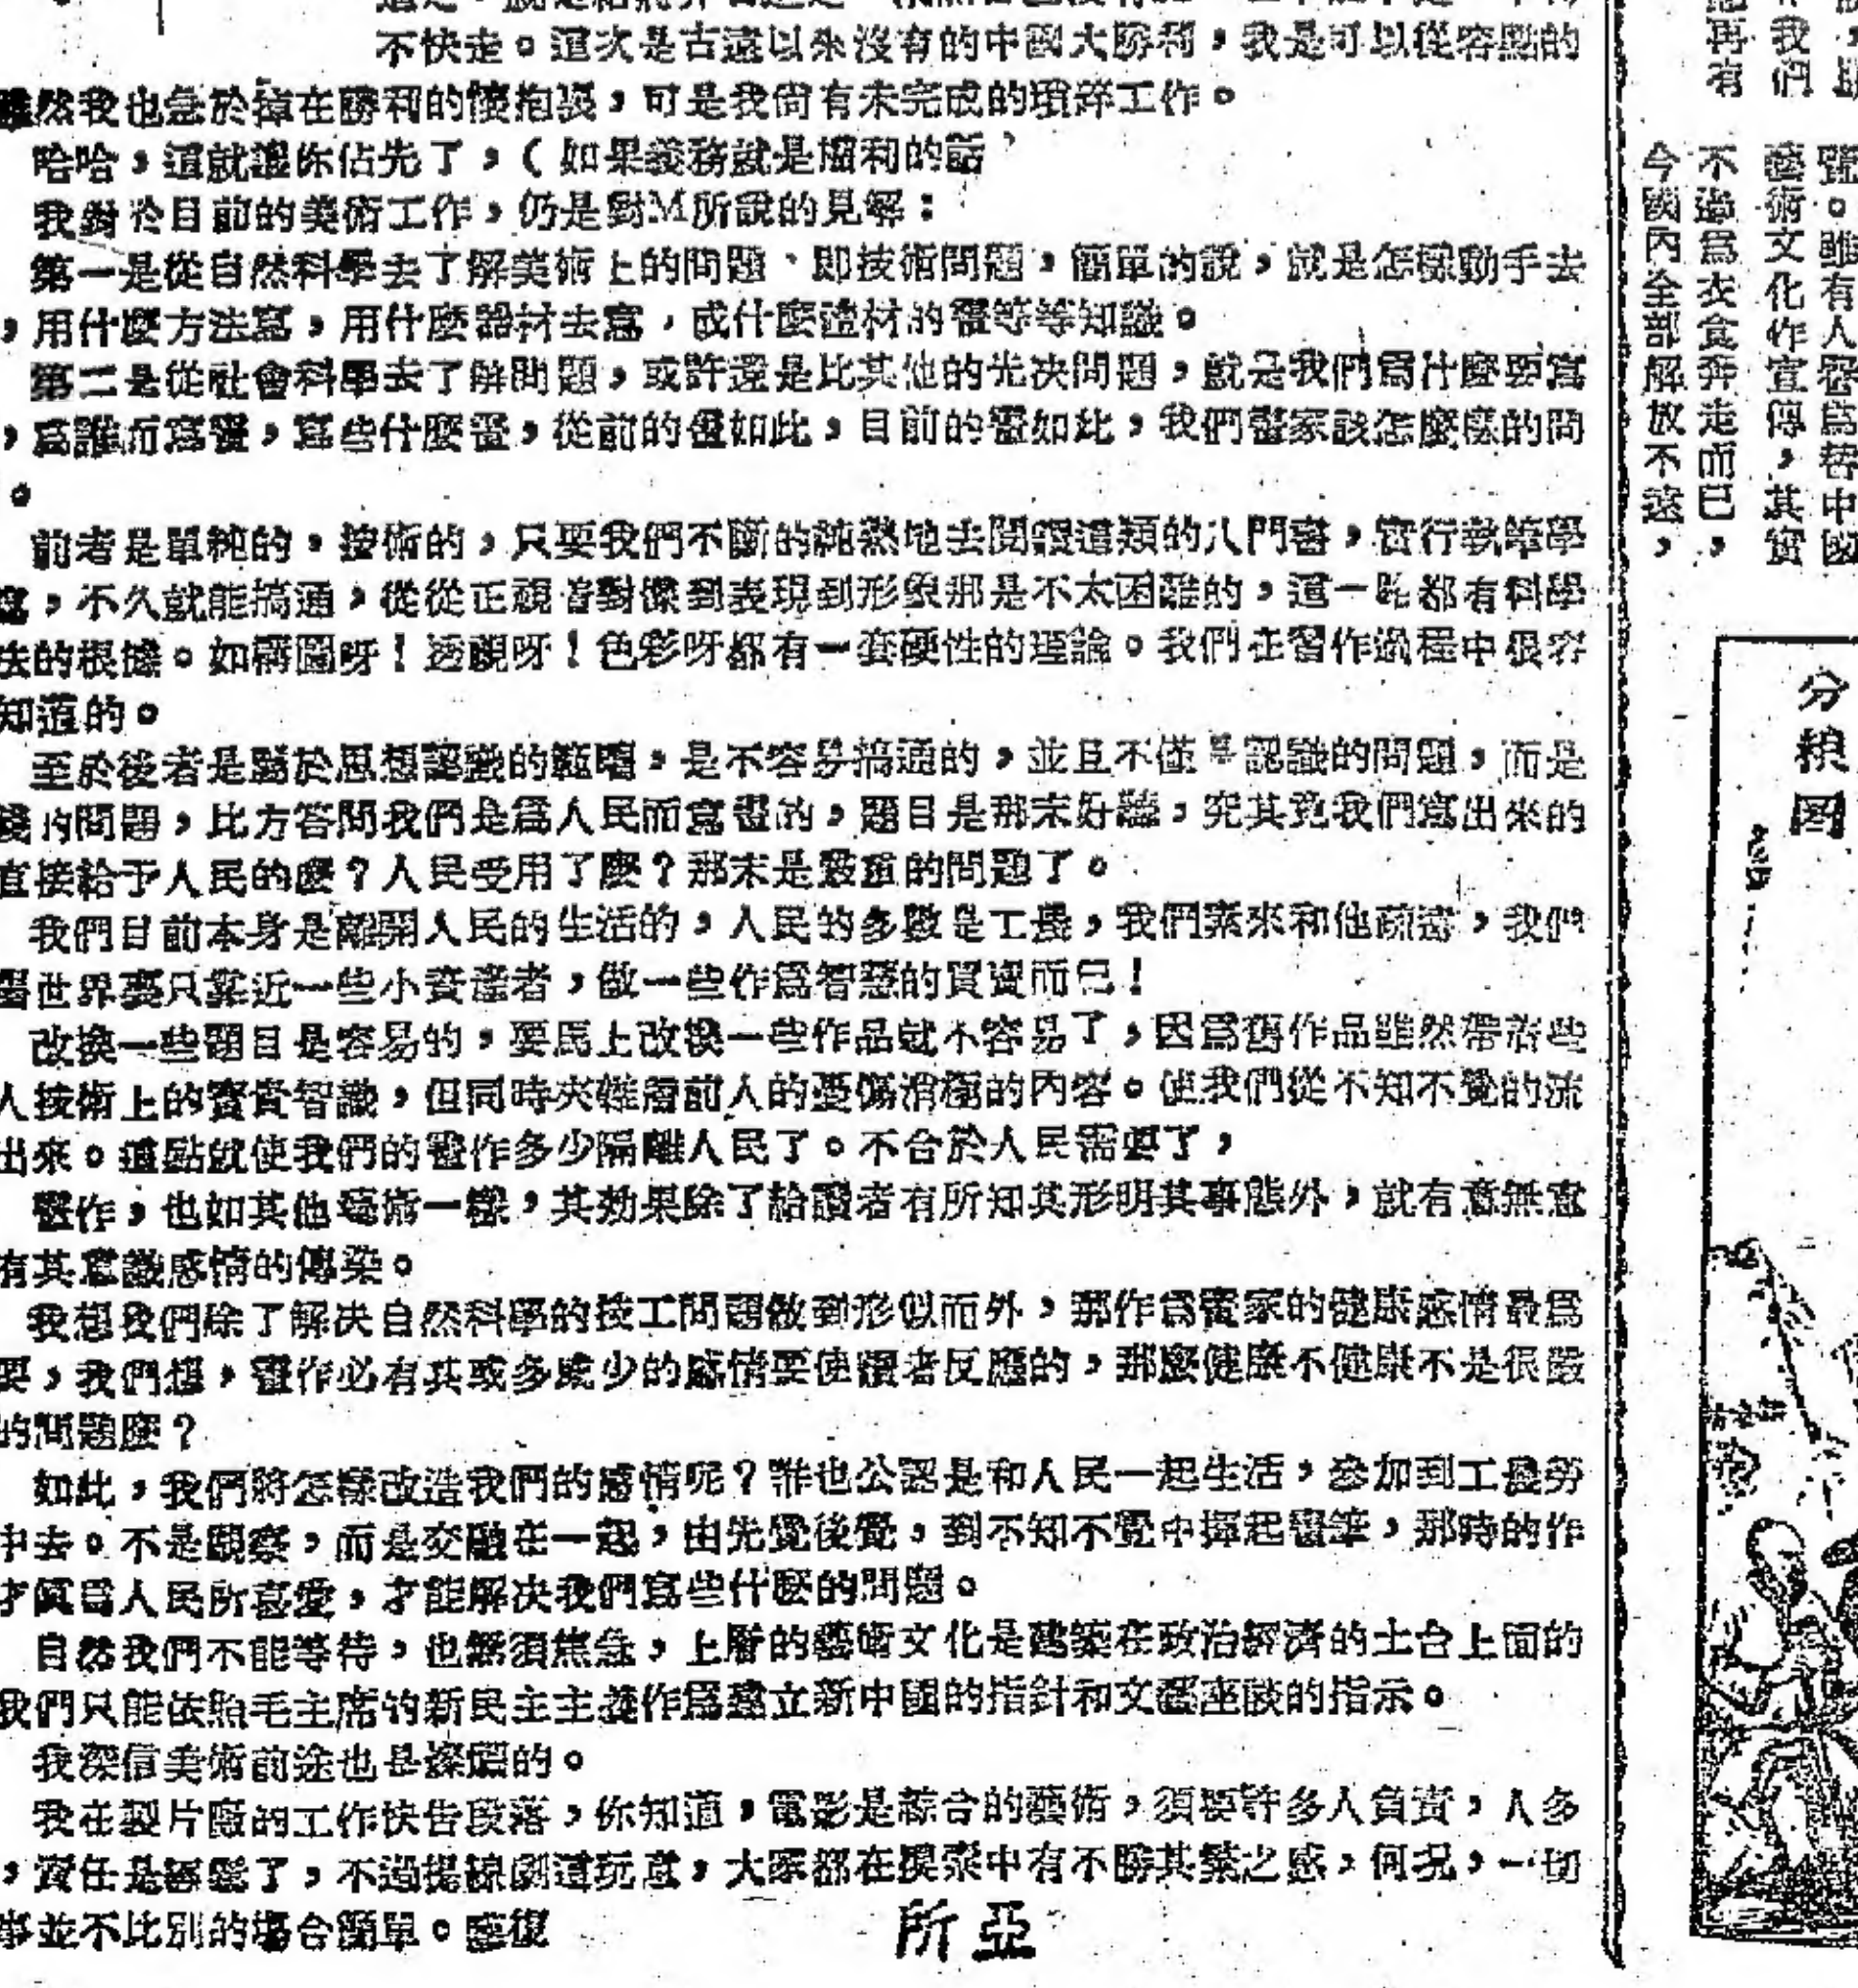 不快走。這次是古遠以來沒有的中國大勝利，我是可以從容點的
雖然我也急於掉在勝利的懷抱裏，可是我尙有未完成的瑣碎工作。
哈哈，這就讓你佔先了，（如果義務就是權利的話
我對於目前的美術工作，仍是對M所說的見解：
第一是從自然科學去了解美術上的問題、即技術問題，簡單的說，就是怎樣動手去
，用什麼方法寫，用什麼器材去寫，或什麼體材的畫等等知識。
第二是從社會科學去了解問題，或許還是比其他的先決問題，就是我們爲什麼要寫
，爲誰而寫畫，寫些什麼畫，從前的畫如此，目前的畫如此，我們畫家該怎麼樣的問
。
前者是單純的，技術的，只要我們不斷的純熟地去閱讀這類的入門書，實行執筆學
寫，不久就能搞通，從從正視着對像到表現到形象那是不太困難的，這一點都有科學
法的根據。如構圖呀！透視呀！色彩呀都有一套硬性的理論。我們在習作過程中很容
知道的。
至於後者是屬於思想認識的範疇，是不容易搞通的，並且不僅是認識的問題，而是
踐的問題，比方答問我們是爲人民而寫畫的，題目是那末好聽，究其竟我們寫出來的
直接給予人民的麼？人民受用了麼？那末是嚴重的問題了。
我們目前本身是離開人民的生活的，人民的多數是工農，我們素來和他疏遠，我們
畫世界要只靠近一些小資產者，做一些作爲智慧的買賣而已！
改換一些題目是容易的，要馬上改換一些作品就不容易了，因爲舊作品雖然帶着些
人技術上的寶貴智識，但同時夾雜着前人的憂傷消極的內容。使我們從不知不覺的流
出來。這點就使我們的畫作多少隔離人民了。不合於人民需要了，
畫作，也如其他藝術一樣，其効果除了給讀者有所知其形明其事態外，就有意無意
有其意識感情的傳染。
我想我們除了解决自然科學的技工問題做到形似而外，那作爲畫家的健康感情最爲
要，我們想，畫作必有其或多或少的感情要使讀者反應的，那麼健康不健康不是很嚴
的問題麼？
如此，我們將怎樣改造我們的感情呢？誰也公認是和人民一起生活，參加到工農勞
中去。不是觀察，而是交融在一起，由先覺後覺，到不知不覺中揮起畫筆，那時的作
才眞爲人民所喜愛，才能解决我們寫些什麼的問題。
自然我們不能等待，也無須焦急，上層的藝術文化是建築在政治經濟的土台上面的
我們只能依照毛主席的新民主主義作爲建立新中國的指針和文藝座談的指示。
我深信美術前途也是燦爛的。
我在製片廠的工作快告段落，你知道，電影是綜合的藝術，須要許多人負責，人多
，責任是輕鬆了，不過提線劇這玩意，大家都在摸索中有不勝其繁之感，何況，一切
事並不比別的場合簡單。應復
所亞
再有
我們
藝術文化作宣傳，其實
不過爲衣食奔走而已，
今國內全部解放不遠，
分粮图